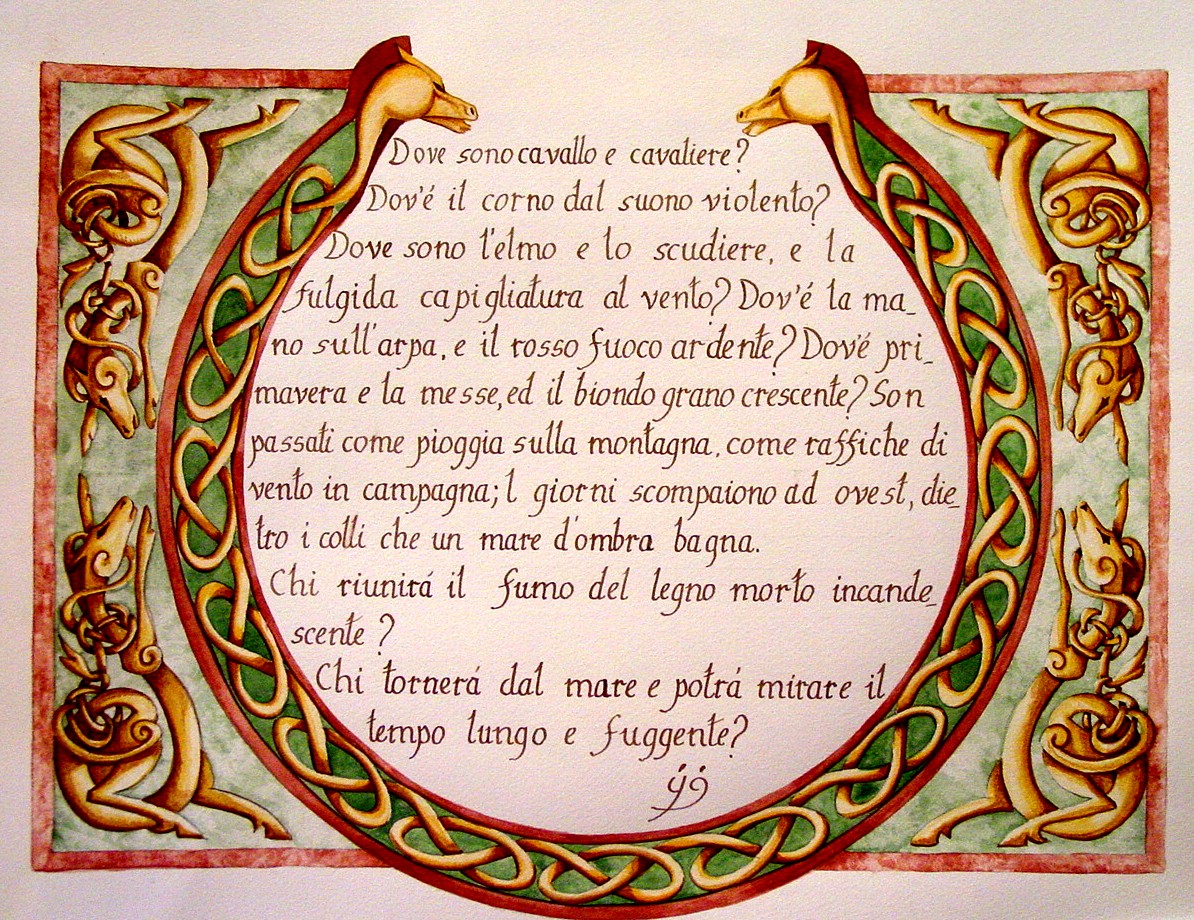 Dove sono cavallo e cavaliere?
Dov'é il corno dal suono violento?
Dove sono l'elmo e lo scudiere, e la
fulgida capigliatura al vento? Dov'é la ma_
no sull'arpa, e il rosso fuoco ardente? Dov'é pri_
mavera e la messe, ed il biondo grano crescente? Son
passati come pioggia sulla montagna, come raffiche di
vento in campagna; I giorni scompaiono ad ovest, die_
tro i colli che un mare d'ombra bagna.
Chi riunirá il fumo del legno morto incande_
scente?
Chi tornerá dal mare e potrá mirare il
tempo lungo e fuggente?